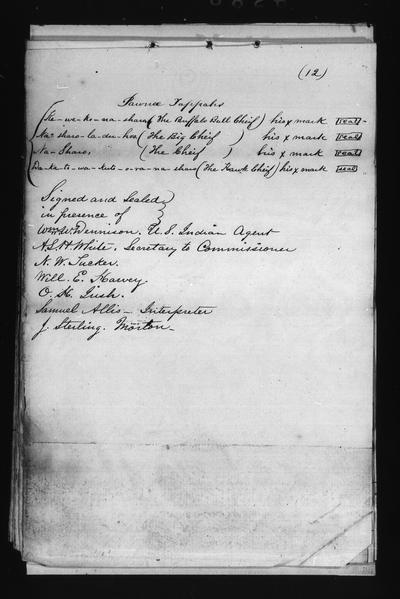 (12)
Pawnee Tappahs
Te-we-ho-na-sharo (The Buffalo Bull Chief) his x mark seal
Na-sharo-la-du-hoo (The Big Chief) his x mark seal
Na-Sharo, (The Chief) his x mark seal
Da-ka-to-wa-kuts-o-ra-na-sharo (The Hawk Chief) his x mark seal
Signed and Sealed
in presence of
Wm W. Dennison, U. S. Indian Agent
A. S. H. White, Secretary to Commissioner
N. W. Tucker.
Will. E. Harvey
O. H. Irish.
Samuel Allis - Interpreter
J. Sterling. Morton -